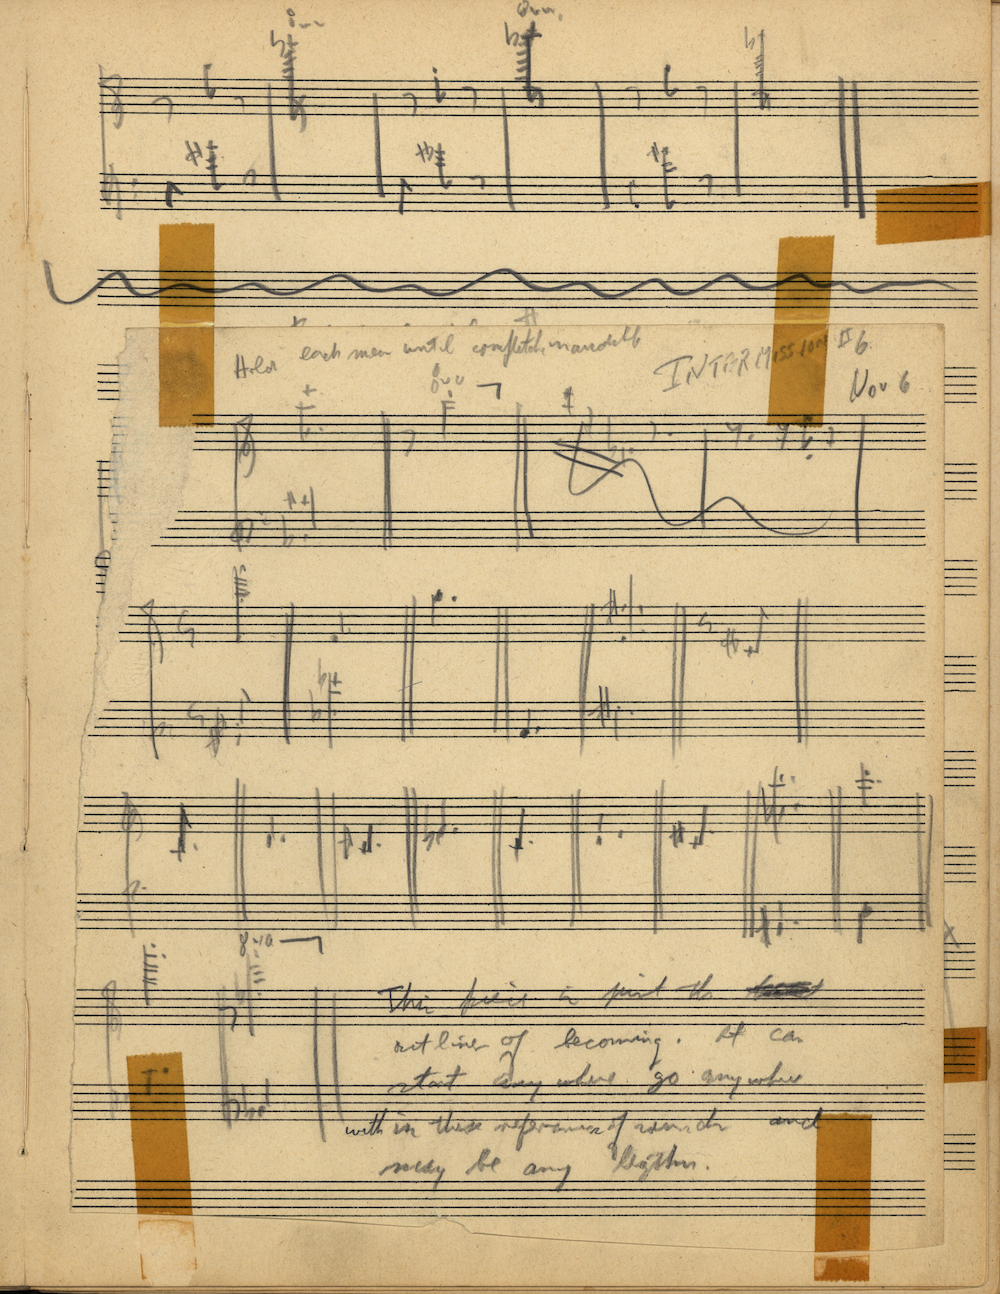 8va
8va
Hold each measure until completely inaudible
INTERMISSION #6
Nov 6
8va
8va
This piece is just the
outline of becoming. It can
start anywhere go anywhere
within these references of sounds and
may be any length.